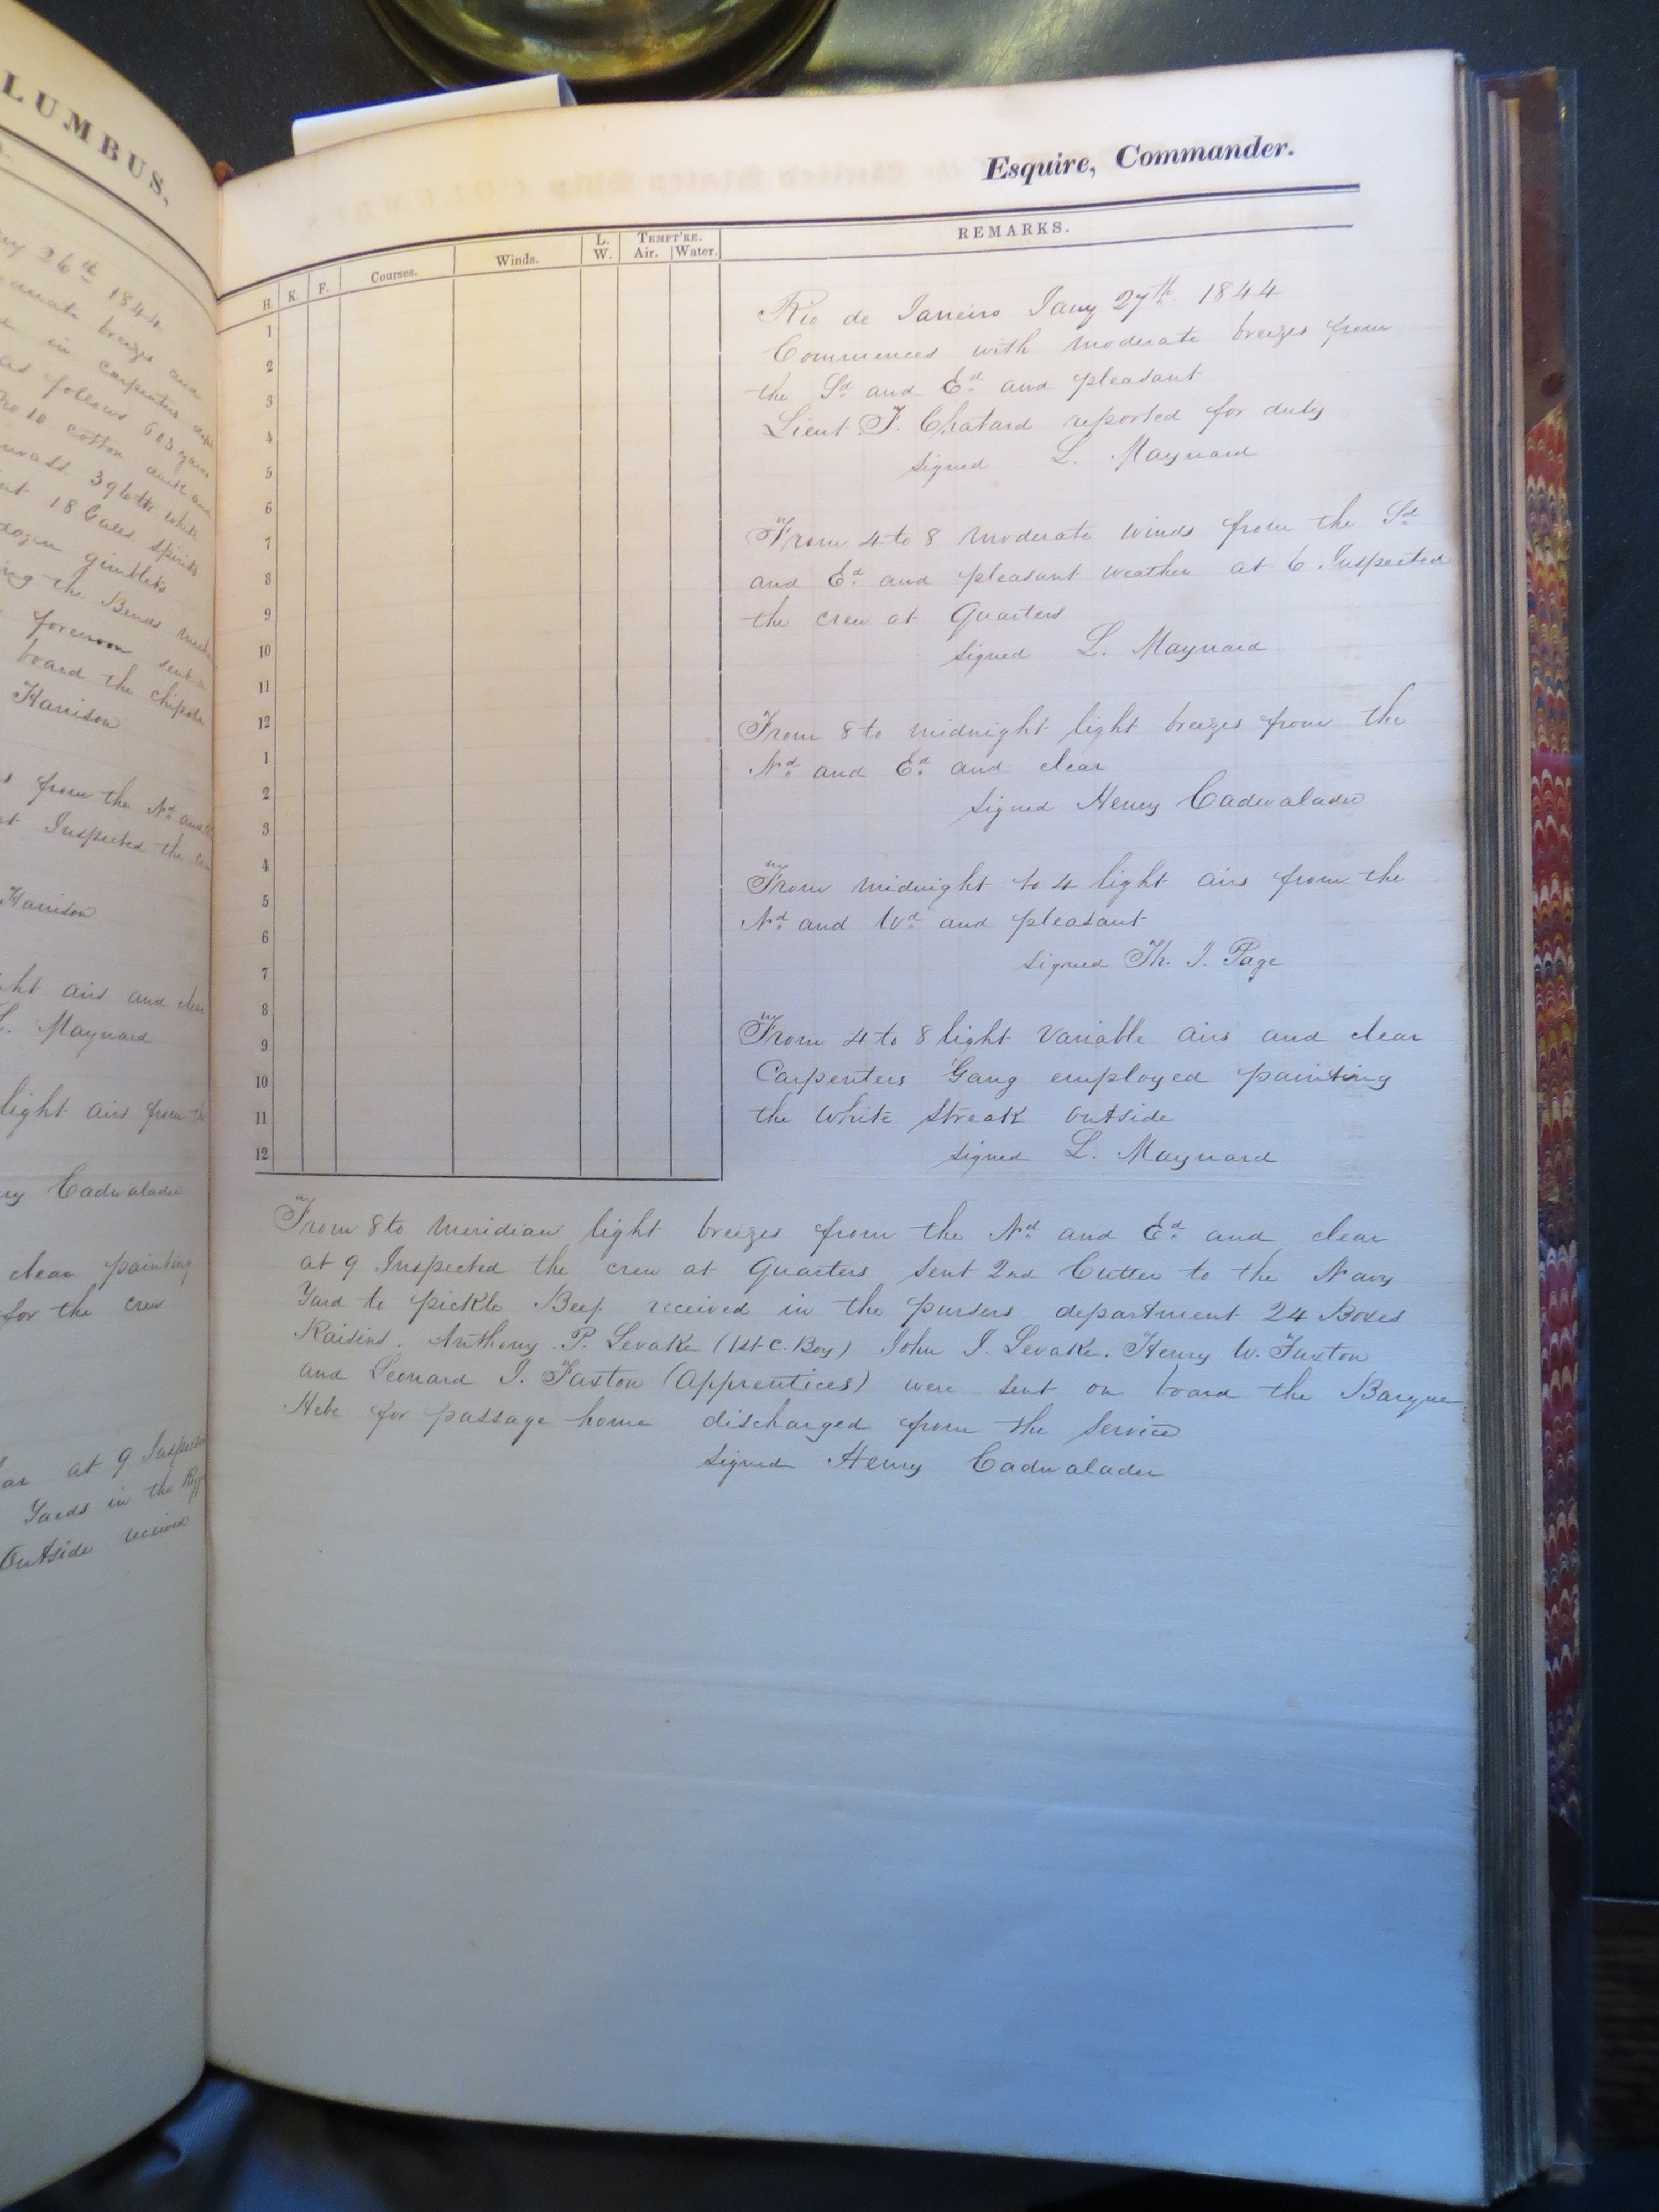 LUMBUS,
26th 1844
breezes and
in carpenters dept
as follows 603 yards
No 10 cotton duck and
396 lbs white
18 Galls. Spirits
dozen gimblets
the Bends
forenoon sent
board the chipola
Harrison
from the Nd and
Inspected the crew
Harrison
light airs and clear
L. Maynard
light airs from the
Cadwalader
clear painting
for the crew
at 9 Inspected
Yards in the
Outside received
Esquire, Commander.
H. K. F. Courses. Winds. L. W. TEMPT'RE. Air. Water. REMARKS.
1
2
3
4
5
6
7
8
9
10
11
12
1
2
3
4
5
6
7
8
9
10
11
12
Rio de Janeiro Jany 27th 1844
Commences with moderate breezes from
the Sd and Ed and pleasant
Lieut F. Chatard reported for duty
signed L. Maynard
From 4 to 8 moderate winds from the Sd
and Ed and pleasant weather at 6 Inspected
the crew at Quarters
signed L. Maynard
From 8 to midnight light breezes from the
Nd and Ed and clear
signed Henry Cadwalader
From midnight to 4 light airs from the
Nd and Wd and pleasant
signed Th. J. Page
From 4 to 8 light variable airs and clear
Carpenters Gang employed painting
the white streak outside
signed L. Maynard
From 8 to meridian light breezes from the Nd and Ed and clear
at 9 Inspected the crew at Quarters sent 2nd Cutter to the Navy
Yard to pickle Beef received in the pursers department 24 Boxes
Raisins. Anthony P. Levake (1st C. Boy) John J. Levake. Henry W. Faxton
and Leonard J. Faxton (apprentices) were sent on board the Barque
Hebe for passage home discharged from the service
signed Henry Cadwalader